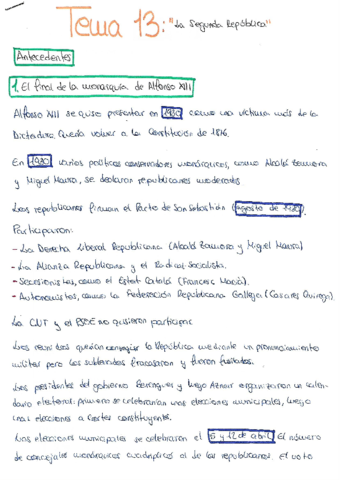 Tema 13: "La Segunda República"
Antecedentes
1. El final de la monarquía de Alfonso XIII
Alfonso XIII se quiso presentar en 1930 como una víctima más de la
Dictadura. Quería volver a la Constitución de 1876.
En 1930 varios políticos conservadores monárquicos, como Alcalá Zamora
y Miguel Maura, se declaran republicanos moderados
Los republicanos firman el Pacto de San Sebastián (agosto de 1930).
Participaron:
- La Derecha Liberal Republicana (Alcalá Zamora y Miguel Maura)
- La Alianza Republicana y el Radical-Socialista.
- Secesionistas, como el Estat Catalá (Francesc Maciá).
- Autonomistas, como la Federación Republicana Gallega (Casares Quiroga)
La CNT y el PSOE no quisieron participar
Los reunidos querían conseguir la República mediante un pronunciamiento
militar pero los sublevados fracasaron y fueron fusilados.
Los presidentes del gobierno Berenguer y luego Aznar organizaron un calen-
dario electoral: primero se celebrarían unas elecciones municipales, luego
unas elecciones a Cortes constituyentes.
Las elecciones municipales se celebraron el 5 y 12 de abril. El número
de concejales monárquicos cuadruplicó al de los republicanos. El voto